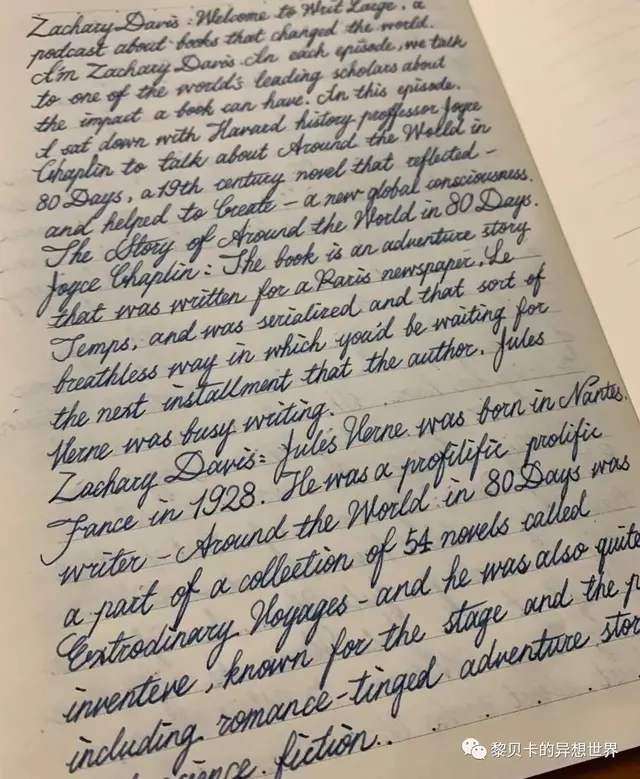 Zachary Davis: Welcome to Writ Large, a
podcast about books that changed the world.
I'm Zachary Davis. In each episode, we talk
to one of the world's leading scholars about
the impact a book can have. In this episode,
I sat down with Havard history proffessor Joyce
Chaplin to talk about Around the World in
80 Days, a 19th century novel that reflected -
and helped to Create - a new global consciousness.
The Story of Around the World in 80 Days.
Joyce Chaplin: The book is an adventure story
that was written for a Paris newspaper, Le
Temps, and was serialized and that sort of
breathless way in which you'd be waiting for
the next installment that the author, Jules
Verne was busy writing.
Zachary Davis: Jules Verne was born in Nantes,
Fance in 1928. He was a profilific prolific
writer - Around the World in 80 Days was
a part of a collection of 54 novels called
Extrodinary Voyages - and he was also quite
inventeve, known for the stage and the p
including romance-tinged adventure stor
science fiction.
黎贝卡的异想世界